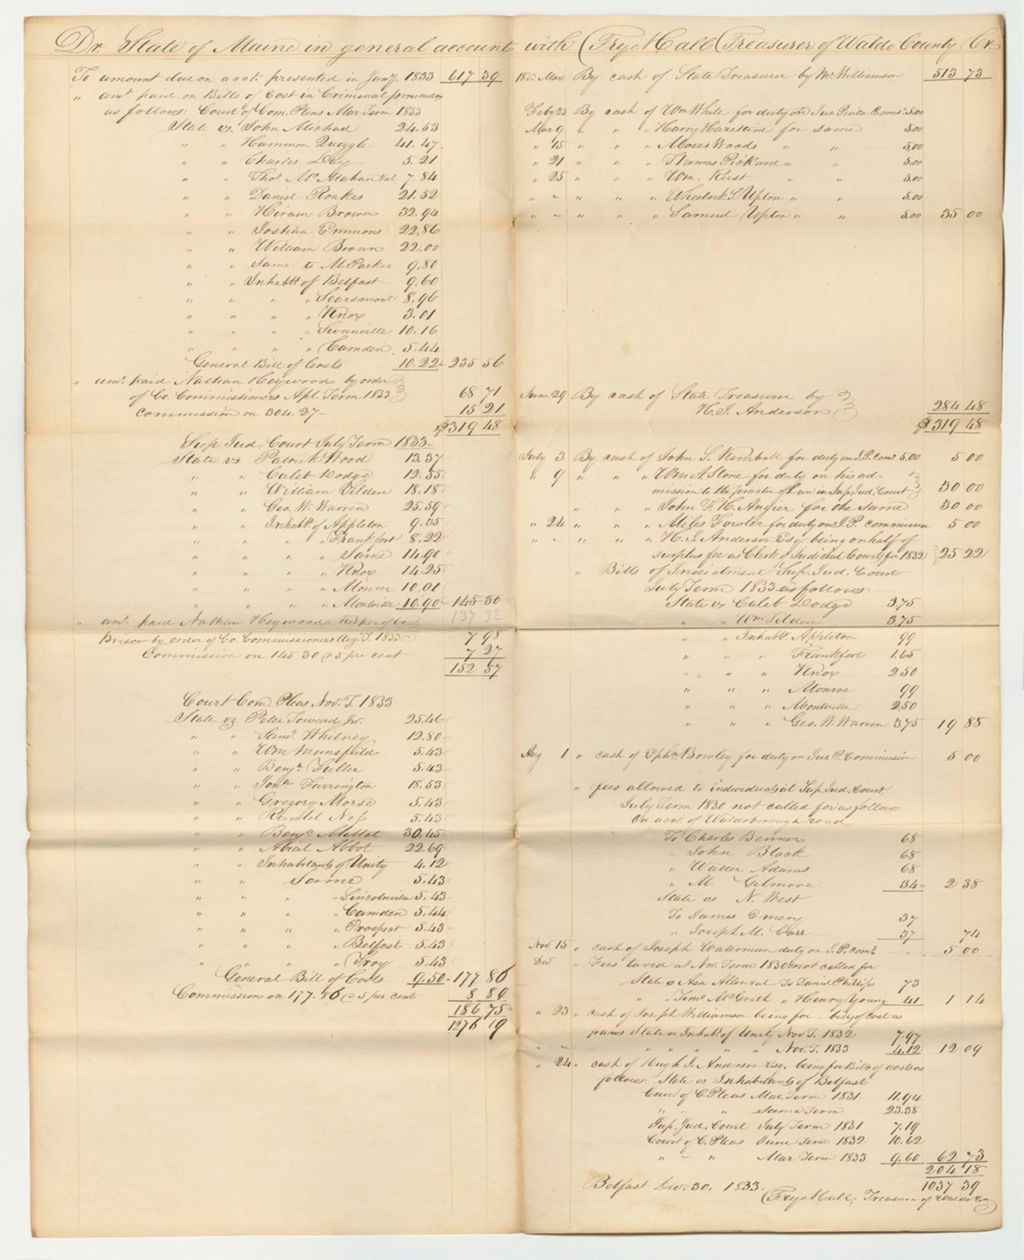 Dr. State of Maine in general account with Frye Hall Treasurer of Waldo County Cr.
To amount due on acct. presented in Jany. 1833 617 39
" amt. paid on Bills of Cost in Criminal prosecutions
as follows. Court of Com. Pleas Mar Term 1833
State vs. John Michael 24.53
" " Hammon Quiggle 41.47
" " Charles Day 5.21
" " Thos. McMahan &al 7.84
" " Daniel Roakes 21.52
" " Hiram Brown 32.94
" " Joshua Emmons 22.86
" " William Brown 22.00
" " Same to M. Parker 9.80
" " Inhabts. of Belfast 9.60
" " " " Searsmont 8.96
" " " " Knox 3.01
" " " " Swanville 10.16
" " " " Camden 5.44
General Bill of Costs 10.22 235 56
" amt. paid Nathan Heywood by order
of Co. Commissioners Apl. Term 1833 68 71
Commission on 304.27 15 21
$319 48
Sup. Jud. Court July Term 1833
State vs Patrick Wood 13.37
" " Caleb Dodge 12.55
" " William Tilden 18.18
" " Geo. W. Warren 25.59
" " Inhabt. of Appleton 9.35
" " " " Frankfort 8.22
" " " " Same 14.90
" " " " Knox 14.25
" " " " Monroe 10.01
" " " " Montville 10.90 145 30
137 32
" amt. paid Nathan Heywood keeping Co.
Prison by order of Co. Commissioners Augt. T. 1833 7 98
Commission on 145.30 @ 5 per cent 7 27
152 57
Court Com. Pleas Nov. T. 1833
State vs. Peter Toward Jr. 25.46
" " Saml. Whitney 12.80
" " Wm Mansfield 5.43
" " Benjn. Fuller 5.43
" " Jona. Farrington 18.53
" " Gregory Morse 5.43
" " Rendol Ness 5.43
" " Benjn. Millet 30.45
" " Abial Abbot 22.69
" " Inhabitants of Unity 4.12
" " Same 5.43
" " " " Lincolnville 5.43
" " " " Camden 5.44
" " " " Prospect 5.43
" " " " Belfast 5.43
" " " " Troy 5.43
General Bill of Costs 9.50 177 86
Commission on 177.86 @ 5 per cent 8 89
186 75
1276 19
1833 Mar By cash of State Treasurer by Mc Williamson 513 73
Feby 23 By cash of Wm White for duty on Jus. Peace Comn. 5.00
Mar 9 " " " Harry Hazeltine for same 5.00
" 15 " " " Moses Woods " " 5.00
" 21 " " " Thomas Pickard " " 5.00
" 25 " " " Wm. Kust " " 5.00
" " " " " Wheelock S. Upton " " 5.00
" " " " " Samuel Upton " " 5.00 35 00
June 29 By cash of State Treasurer by
H. J. Anderson 284.48
$319 48
July 3 By cash of John S. Kimball for duty on J. P. comn. 5.00 5 00
" 9 " " " Wm A. Stone for duty on his ad-
mission to the practice of Law in Sup. Jud. Court 30 00
" " " John F. H. Angier for the same 30 00
" 24 " " " Miles Fowler for duty on J. P. commission 5 00
" " " " " H. J. Anderson Esq. being one half of
surplus fee as Clerk of Judicial Courts for 1832 25 22
" Bills of Indictment Sup. Jud. Court
July Term 1833 as follows
State vs Caleb Dodge 3 75
" " Wm Tilden 3 75
" " Inhabt. Appleton 99
" " " Frankfort 1.65
" " " Knox 2 50
" " " Monroe 99
" " " Montville 2 50
" " " Geo. W. Warren 3 75 19 88
Aug 1 " cash of Ephm. Bowley for duty on Jus. P. Commission 5 00
" fees allowed to individuals at Sup. Jud. Court
July Term 1830 not called for as follows
On acct. of Waldoborough road
To Charles Benner 68
" John Black 68
" Walter Adams 68
" M. Gilmore 34 2 38
State vs N. West
To James Emery 37
" Joseph M. Carr 37 74
Nov 15 " cash of Joseph Waterman duty on J. P. comn. 5 00
Dec " Fees taxed at Nov. Term 1830 not called for
State vs Asa Allen &al To Daniel Phillips 73
" Timo. McGrath " Henry Young 41 1 14
" 23 " cash of Joseph Williamson being for bills of cost as
follows State vs Inhabt. of Unity Nov. T. 1832 7.97
" " " " " " Nov. T. 1833 4.12 12 09
" 24 " cash of Hugh J. Anderson Esq. being for Bills of costs as
follows State vs Inhabitants of Belfast
Court of C. Pleas Mar Term 1831 11.94
" " " Same Term 23.38
Sup. Jud. Court July Term 1831 7.19
Court of C. Pleas June Term 1832 10.62
" " " Mar Term 1833 9.60 62 73
204 18
1037 39
Belfast Dec. 30, 1833.
Frye Hall, Treasurer of Waldo Co.